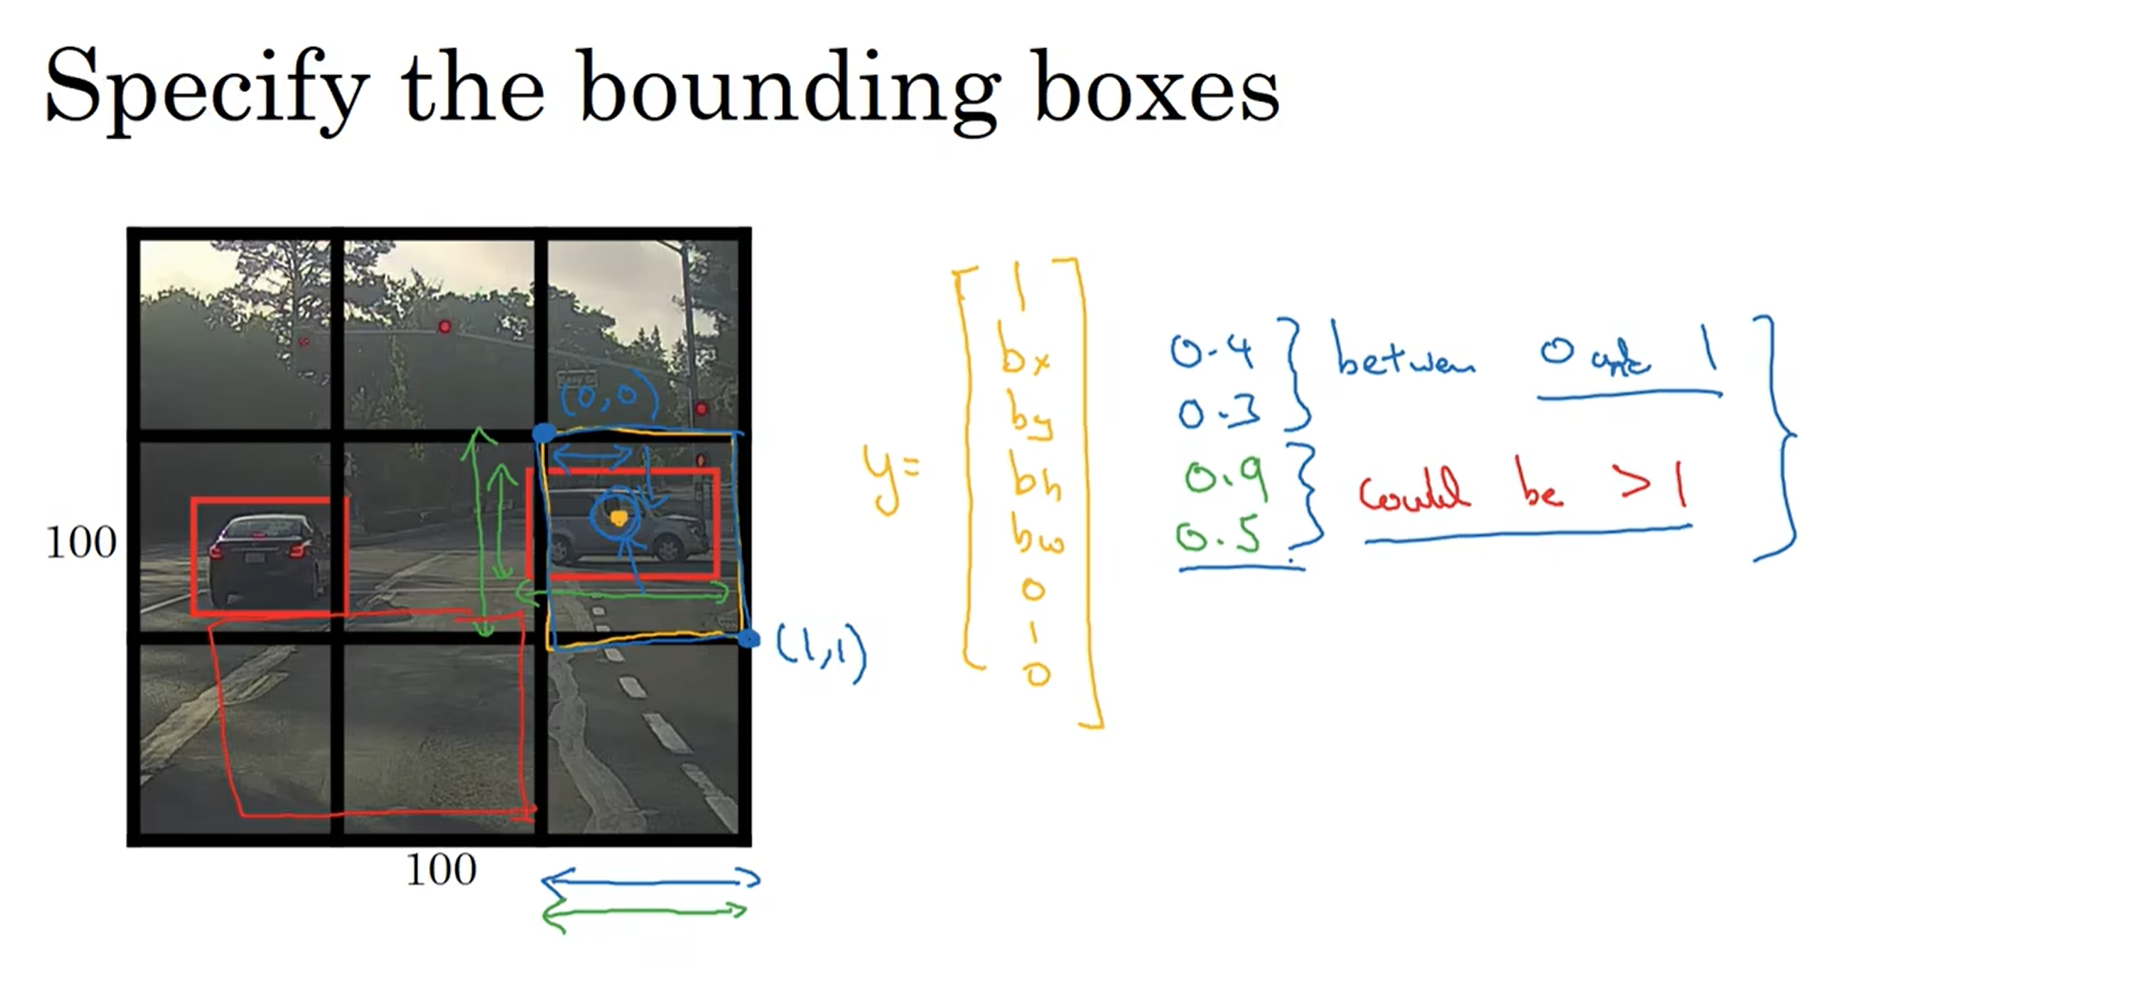 Specify the bounding boxes
(0,0)
100
100
(1,1)
y=
1
bx
by
bh
bw
0
1
0
0.4
0.3
between 0 and 1
0.9
0.5
could be >1